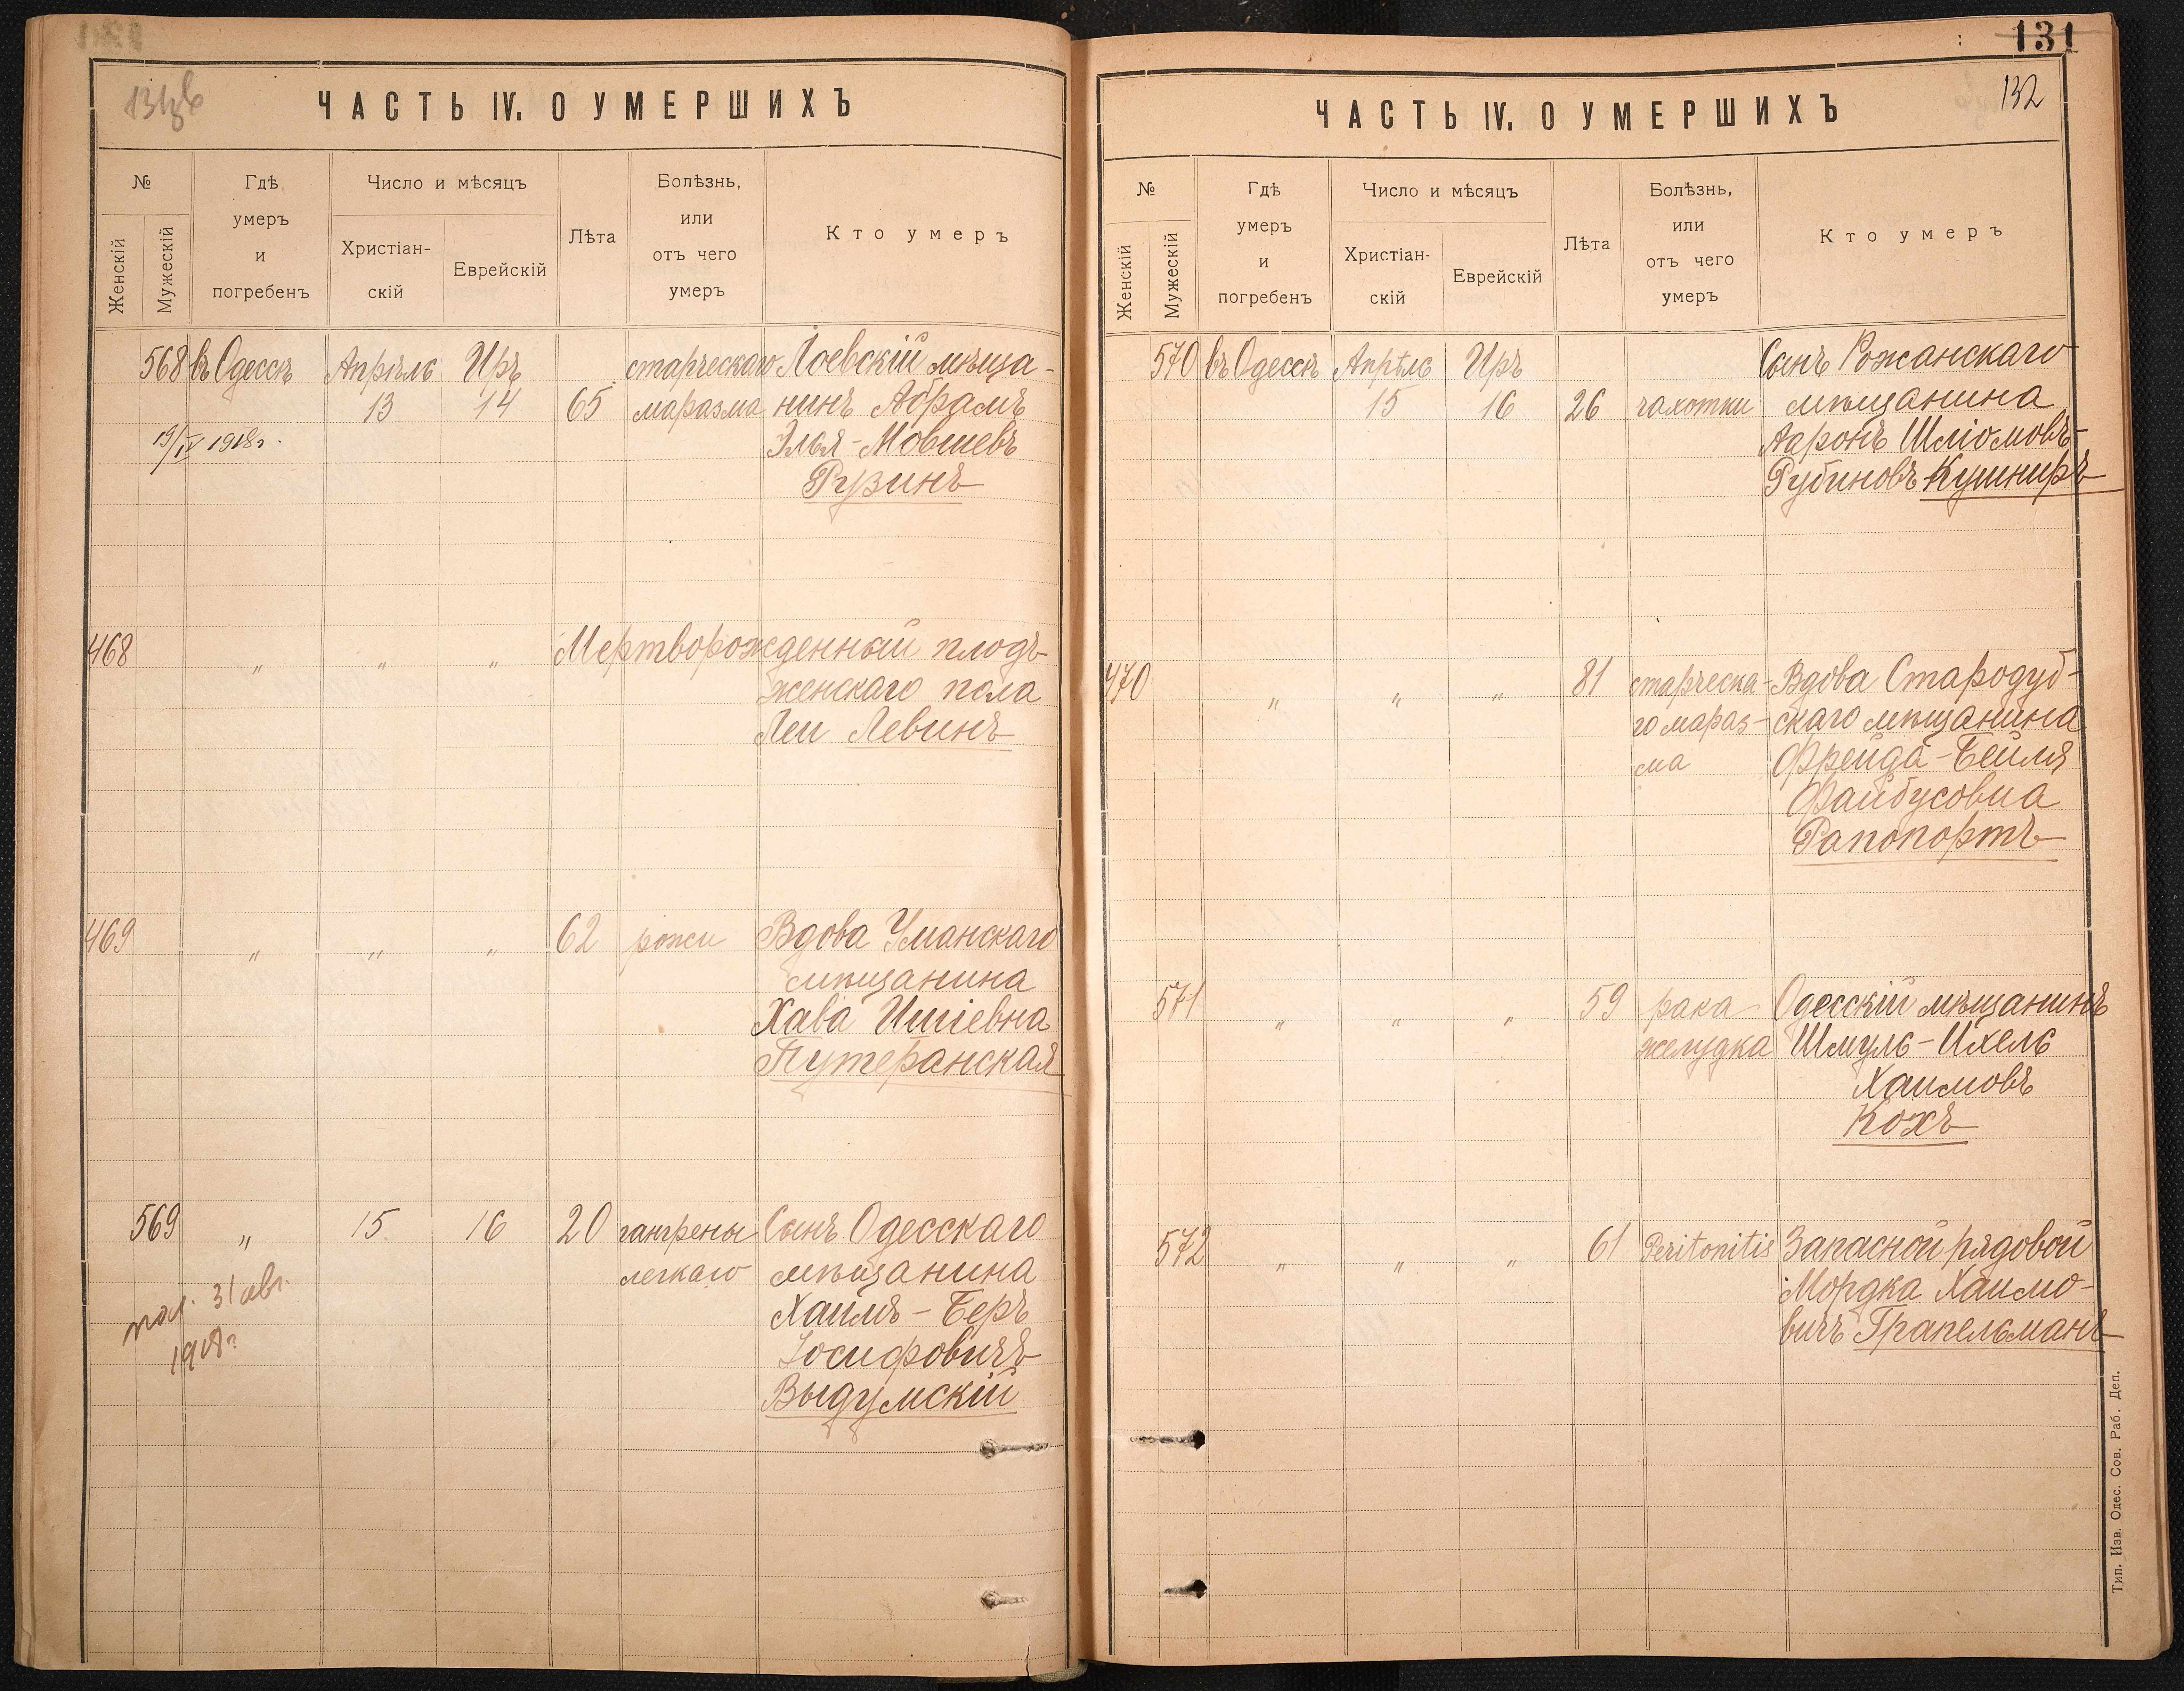 ЧАСТЬ IV. О УМЕРШИХЪ
№
Женскій
Мужескій
Гдѣ
умеръ
и
погребенъ
Число и мѣсяцъ
Христіан-
скій
Еврейскій
Лѣта
Болѣзнь,
или
отъ чего
умеръ
Кто умеръ
568 въ Одессѣ Апрѣль Иръ старческаго Лоевскій мѣща-
13 14 65 маразма нинъ Абрамъ
19/IV 1918г. Элья-Мовшевъ
Рузинъ
468 " " " Мертворожденный плодъ
женскаго пола
Леи Левинъ
469 " " " 62 рожи Вдова Уманскаго
мѣщанина
Хава Ишіевна
Путеранская
569 " 15 16 20 гангрены Сынъ Одесскаго
легкаго мѣщанина
Хаимъ-Беръ
Іосифовичъ
Выдумскій
31 авг.
1918г
131
132
ЧАСТЬ IV. О УМЕРШИХЪ
№
Женскій
Мужескій
Гдѣ
умеръ
и
погребенъ
Число и мѣсяцъ
Христіан-
скій
Еврейскій
Лѣта
Болѣзнь,
или
отъ чего
умеръ
Кто умеръ
570 въ Одессѣ Апрѣль Иръ Сынъ Рожанскаго
15 16 26 чахотки мѣщанина
Ааронъ Шліомовъ-
Рубиновъ Кушниръ
470 " " " 81 старческа- Вдова Стародуб-
го мараз- скаго мѣщанина
ма Фрейда-Бейля
Файбусовна
Рапопортъ
571 " " " 59 рака Одесскій мѣщанинъ
желудка Шмуль-Ихель
Хаимовъ
Кохъ
572 " " " 61 Peritonitis Запасной рядовой
Мордка Хаимо-
вичъ Грапельманъ
Тип. Изв. Одес. Сов. Раб. Деп.